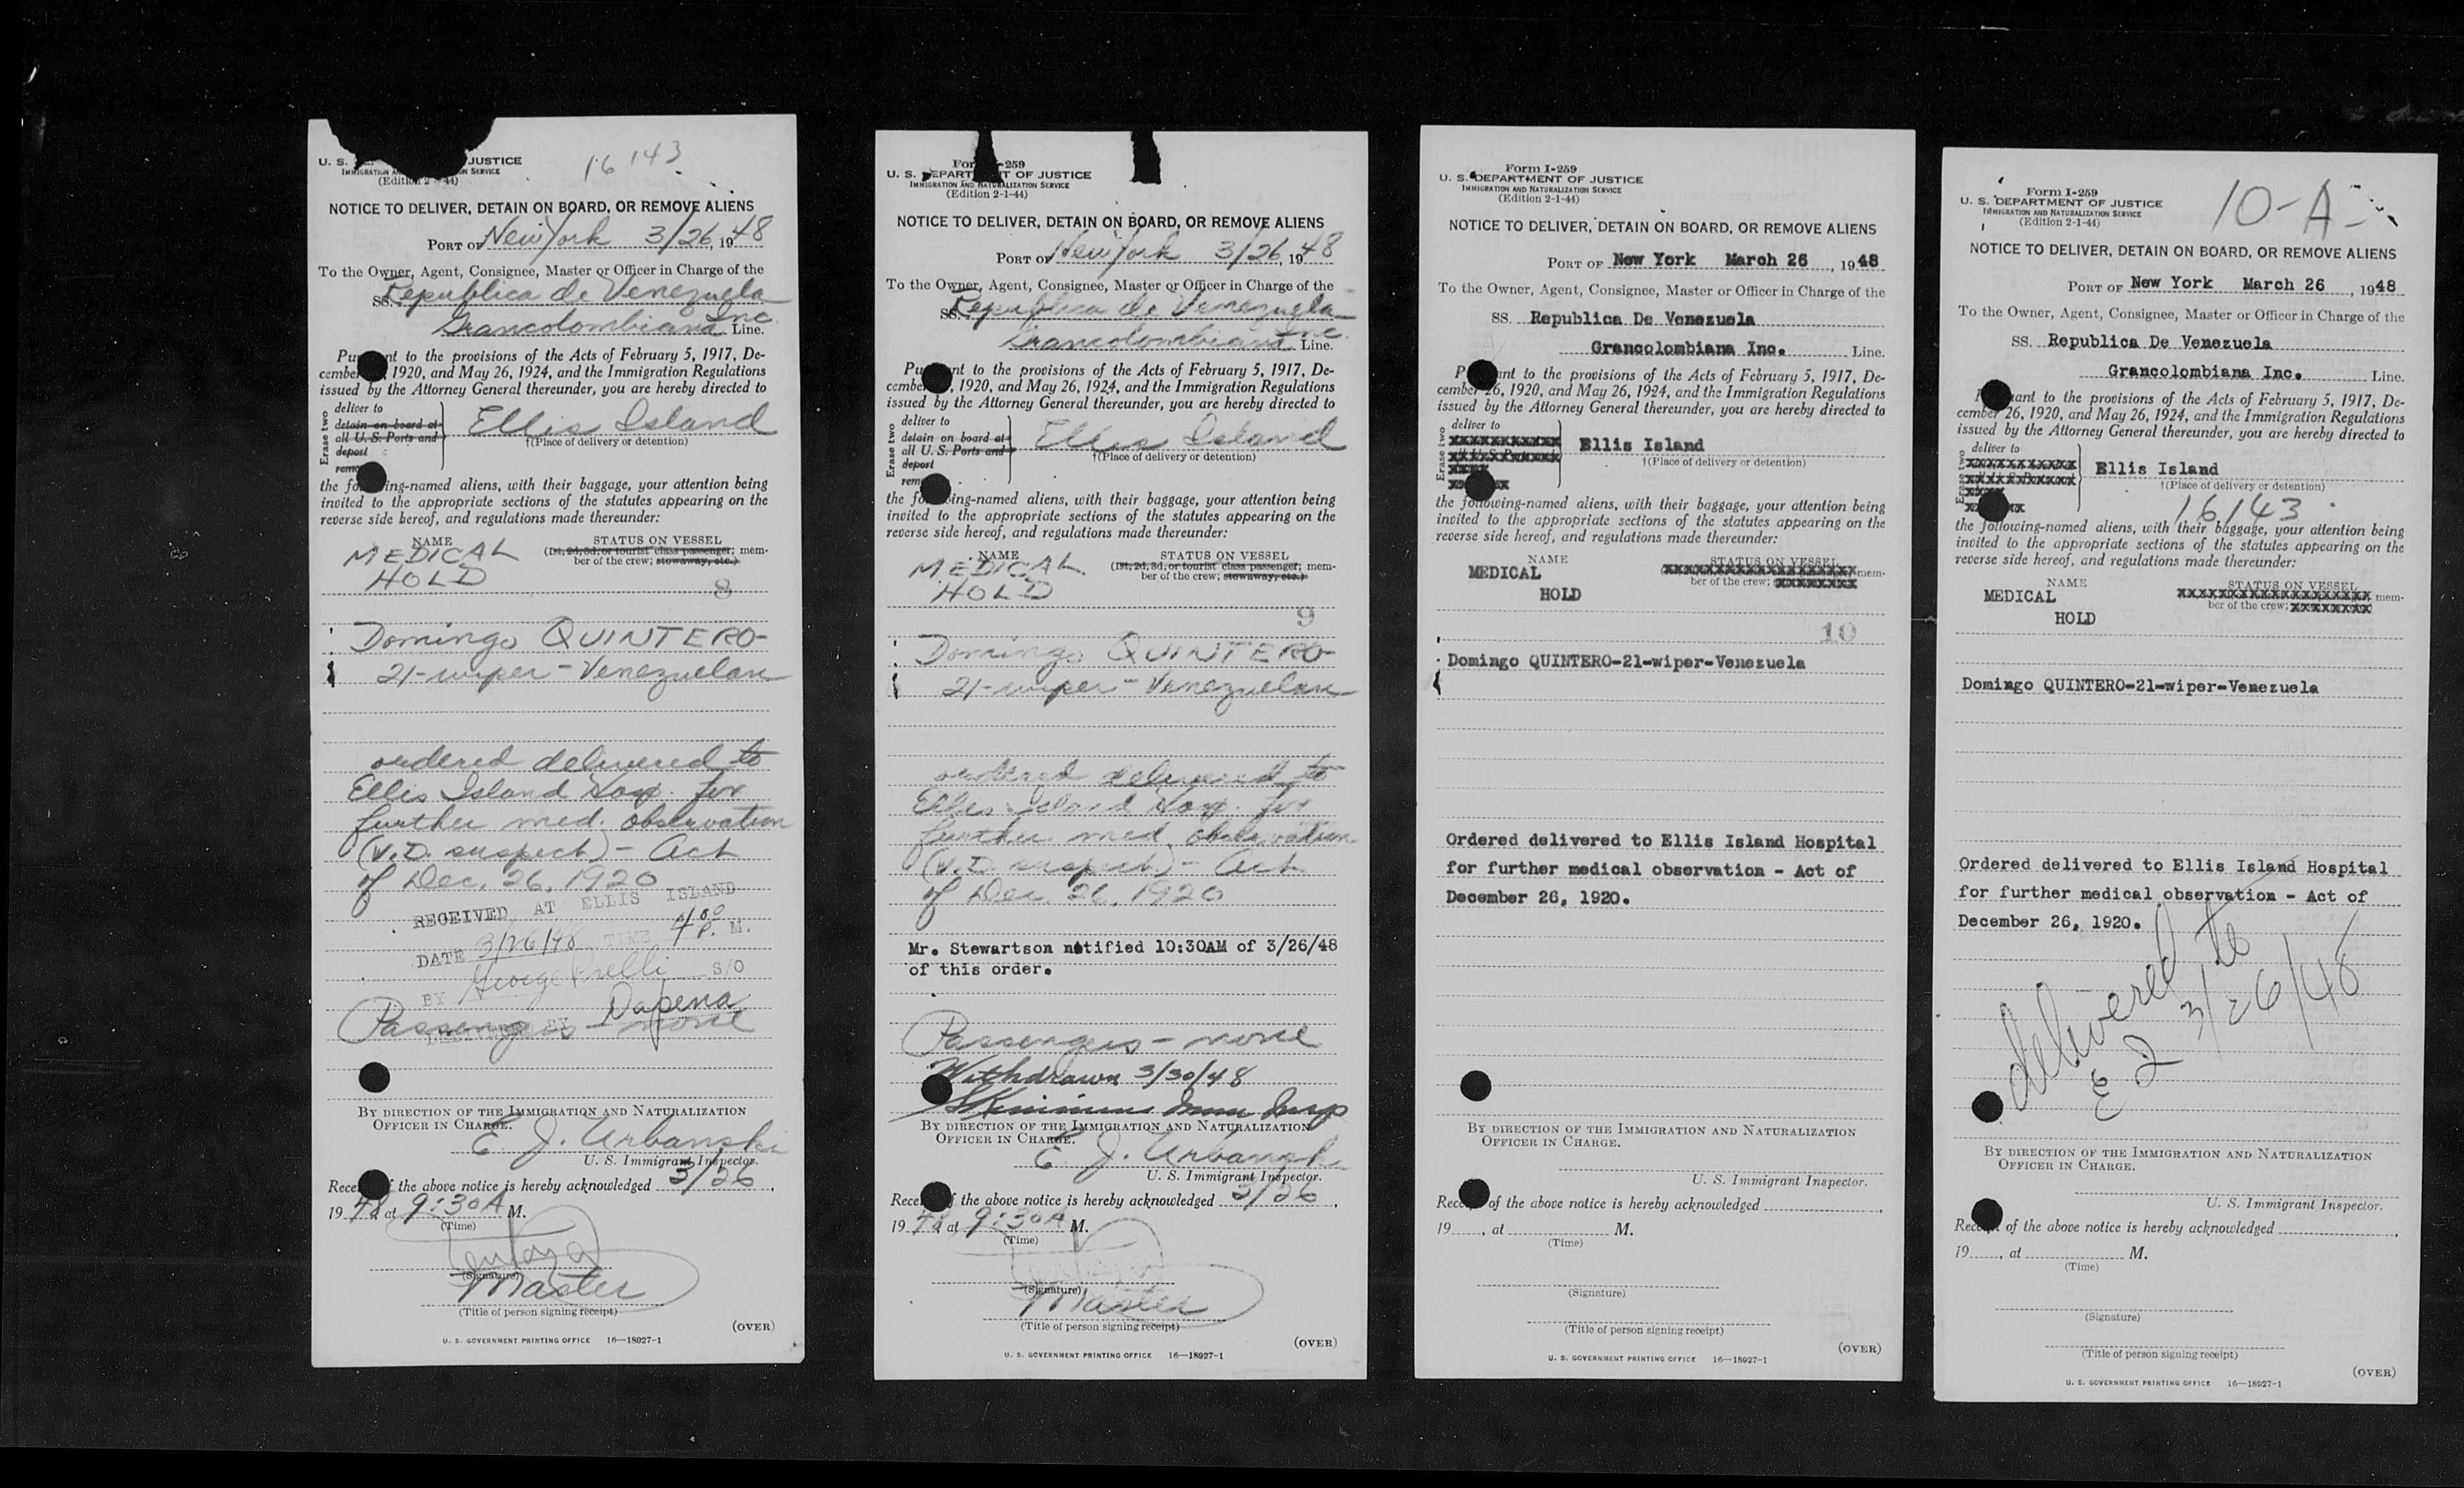 16 143
U. S. JUSTICE
IMMIGRATION AN N SERVICE
(Edition 2 44)
NOTICE TO DELIVER, DETAIN ON BOARD, OR REMOVE ALIENS
PORT OF New York 3/26, 1948
To the Owner, Agent, Consignee, Master or Officer in Charge of the
SS. Republica de Venezuela
Grancolombiana Inc Line.
Pu nt to the provisions of the Acts of February 5, 1917, De-
cember , 1920, and May 26, 1924, and the Immigration Regulations
issued by the Attorney General thereunder, you are hereby directed to
Erase two
deliver to
detain on board at
all U. S. Ports and
deport
remo
Ellis Island
†(Place of delivery or detention)
the fo ing-named aliens, with their baggage, your attention being
invited to the appropriate sections of the statutes appearing on the
reverse side hereof, and regulations made thereunder:
NAME STATUS ON VESSEL
(1st, 2d, 3d, or tourist class passenger; mem-
ber of the crew; stowaway, etc.)
MEDICAL
HOLD
8
Domingo QUINTERO-
21-wiper-Venezuelan
ordered delivered to
Ellis Island Hosp. for
further med. observation
(V.D. suspect) - Act
of Dec. 26, 1920
RECEIVED AT ELLIS ISLAND
DATE 3/26/48 TIME 4 00 P. M.
BY George S/O
Dapena
Passengers - none
BY DIRECTION OF THE IMMIGRATION AND NATURALIZATION
OFFICER IN CHARGE.
E. J. Urbanski
U. S. Immigrant Inspector.
Rece f the above notice is hereby acknowledged 3/26,
1948 at 9:30 A M.
(Time)
(Signature)
Master
(Title of person signing receipt)
(OVER)
U. S. GOVERNMENT PRINTING OFFICE 16—18927-1
For -259
U. S. EPART T OF JUSTICE
IMMIGRATION AND NATURALIZATION SERVICE
(Edition 2-1-44)
NOTICE TO DELIVER, DETAIN ON BOARD, OR REMOVE ALIENS
PORT OF New York 3/26, 1948
To the Owner, Agent, Consignee, Master or Officer in Charge of the
SS. Republica de Venezuela
Grancolombiana Inc. Line.
Pu nt to the provisions of the Acts of February 5, 1917, De-
cembe , 1920, and May 26, 1924, and the Immigration Regulations
issued by the Attorney General thereunder, you are hereby directed to
Erase two
deliver to
detain on board at
all U. S. Ports and
deport
rem
Ellis Island
†(Place of delivery or detention)
the fo ing-named aliens, with their baggage, your attention being
invited to the appropriate sections of the statutes appearing on the
reverse side hereof, and regulations made thereunder:
NAME STATUS ON VESSEL
(1st, 2d, 3d, or tourist class passenger; mem-
ber of the crew; stowaway, etc.)
MEDICAL
HOLD
9
Domingo QUINTERO-
21-wiper-Venezuelan
ordered delivered to
Ellis Island Hosp. for
further med. observation
(V.D. suspect) - Act
of Dec. 26, 1920
Mr. Stewartson notified 10:30AM of 3/26/48
of this order.
Passengers - none
Withdrawn 3/30/48
Imm Insp
BY DIRECTION OF THE IMMIGRATION AND NATURALIZATION
OFFICER IN CHARGE.
E. J. Urbanski
U. S. Immigrant Inspector.
Rece f the above notice is hereby acknowledged 3/26,
1948 at 9:30 A M.
(Time)
(Signature)
Master
(Title of person signing receipt)
(OVER)
U. S. GOVERNMENT PRINTING OFFICE 16—18927-1
Form I-259
U. S. DEPARTMENT OF JUSTICE
IMMIGRATION AND NATURALIZATION SERVICE
(Edition 2-1-44)
NOTICE TO DELIVER, DETAIN ON BOARD, OR REMOVE ALIENS
PORT OF New York March 26, 1948
To the Owner, Agent, Consignee, Master or Officer in Charge of the
SS. Republica De Venezuela
Grancolombiana Inc. Line.
P ant to the provisions of the Acts of February 5, 1917, De-
cember 26, 1920, and May 26, 1924, and the Immigration Regulations
issued by the Attorney General thereunder, you are hereby directed to
Erase two
deliver to
Ellis Island
†(Place of delivery or detention)
the following-named aliens, with their baggage, your attention being
invited to the appropriate sections of the statutes appearing on the
reverse side hereof, and regulations made thereunder:
NAME STATUS ON VESSEL
mem-
ber of the crew;
MEDICAL
HOLD
10
Domingo QUINTERO-21-wiper-Venezuela
Ordered delivered to Ellis Island Hospital
for further medical observation - Act of
December 26, 1920.
BY DIRECTION OF THE IMMIGRATION AND NATURALIZATION
OFFICER IN CHARGE.
U. S. Immigrant Inspector.
Rece of the above notice is hereby acknowledged
19 , at M.
(Time)
(Signature)
(Title of person signing receipt)
(OVER)
U. S. GOVERNMENT PRINTING OFFICE 16—18927-1
10-A-
Form I-259
U. S. DEPARTMENT OF JUSTICE
IMMIGRATION AND NATURALIZATION SERVICE
(Edition 2-1-44)
NOTICE TO DELIVER, DETAIN ON BOARD, OR REMOVE ALIENS
PORT OF New York March 26, 1948
To the Owner, Agent, Consignee, Master or Officer in Charge of the
SS. Republica De Venezuela
Grancolombiana Inc. Line.
P uant to the provisions of the Acts of February 5, 1917, De-
cember 26, 1920, and May 26, 1924, and the Immigration Regulations
issued by the Attorney General thereunder, you are hereby directed to
Erase two
deliver to
Ellis Island
†(Place of delivery or detention)
16143
the following-named aliens, with their baggage, your attention being
invited to the appropriate sections of the statutes appearing on the
reverse side hereof, and regulations made thereunder:
NAME STATUS ON VESSEL
mem-
ber of the crew;
MEDICAL
HOLD
Domingo QUINTERO-21-wiper-Venezuela
Ordered delivered to Ellis Island Hospital
for further medical observation - Act of
December 26, 1920.
delivered to
E I 3/26/48
BY DIRECTION OF THE IMMIGRATION AND NATURALIZATION
OFFICER IN CHARGE.
U. S. Immigrant Inspector.
Rece of the above notice is hereby acknowledged
19 , at M.
(Time)
(Signature)
(Title of person signing receipt)
(OVER)
U. S. GOVERNMENT PRINTING OFFICE 16—18927-1